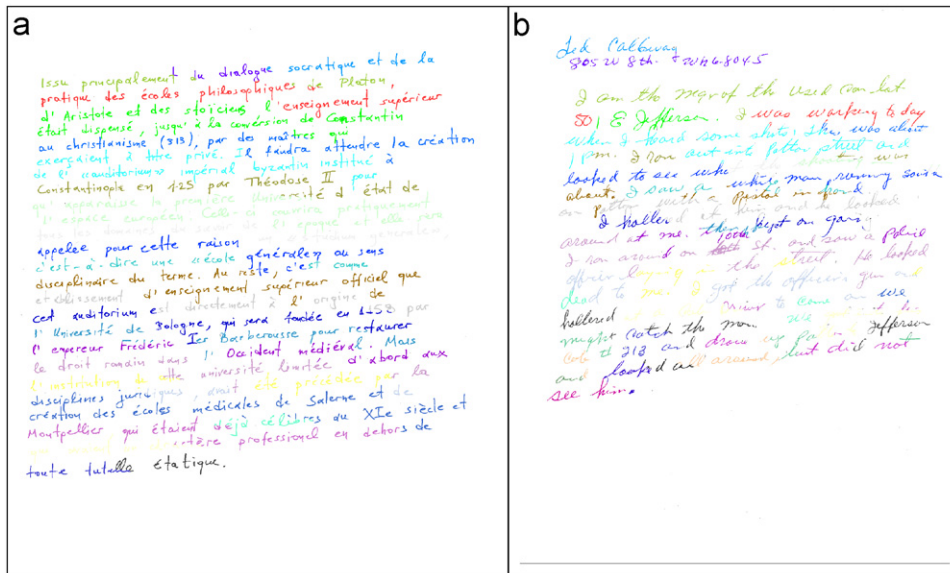 a
Issu principalement du dialogue socratique et de la
pratique des écoles philosophiques de Platon,
d'Aristote et des stoïciens, l'enseignement supérieur
était dispensé, jusqu'à la conversion de Constantin
au christianisme (313), par des maîtres qui
exerçaient à titre privé. Il faudra attendre la création
de l'auditorium impérial byzantin institué à
Constantinople en 425 par Théodose II pour
qu'apparaisse la première Université d'état de
l'espace européen. Celle-ci ouvrira pratiquement
appelée pour cette raison
c'est-à-dire une «école générale» au sens
disciplinaire du terme. Au reste, c'est comme
établissement d'enseignement supérieur officiel que
cet auditorium est directement à l'origine de
l'Université de Bologne, qui sera fondée en 1158 par
l'empereur Frédéric Ier Barberousse pour restaurer
le droit romain dans l'Occident médiéval. Mais
l'institution de cette université limitée d'abord aux
disciplines juridiques, avait été précédée par la
création des écoles médicales de Salerne et de
Montpellier qui étaient déjà célèbres au XIe siècle et
caractère professionnel en dehors de
toute tutelle étatique.
b
Ted Callaway
805 W 8th. WH6-8045
I am the mgr of the used car lot
501 E Jefferson. I was working to day
when I heard some shots, this was about
1 pm. I ran out into Patton street and
looked to see who shooting was
about. I saw a white man running south
on Patton with a pistol in hand.
I hollered at him and he looked
around at me. then kept on going.
I ran around on 10th St. and saw a Police
officer laying in the street. He looked
dead to me. I got the officers gun and
hollered to come on we
might catch the man
cab # 213 and drove up Jefferson
and looked all around but did not
see him.